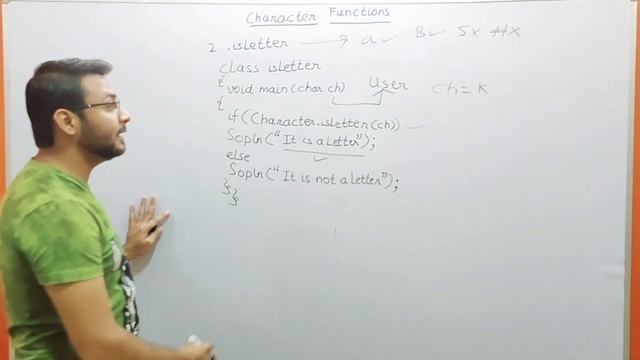 Character Functions
2 .isLetter → a✓ B✓ 5x #x
class isLetter
{ void main(char ch) User ch=K
{
if((Character.isLetter(ch)) ✓
Sopln("It is a Letter");
else
Sopln("It is not a Letter");
}}